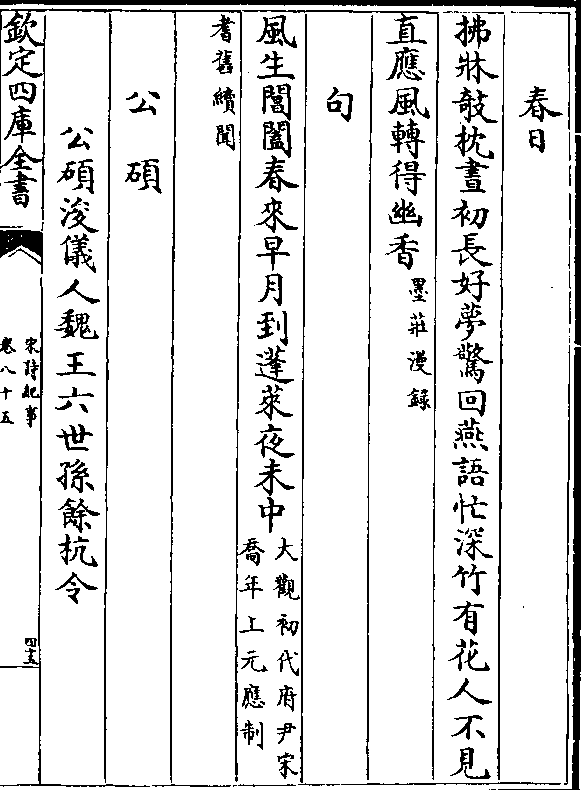 春日
拂牀攲枕晝初長好夢驚回燕語忙深竹有花人不見
直應風轉得幽香墨莊漫録
句
風生閶闔春來早月到蓬萊夜未中大觀初代府尹宋
喬年上元應制
耆舊續聞
公碩
公碩浚儀人魏王六世孫餘杭令
欽定四庫全書
宋詩紀事
卷八十五